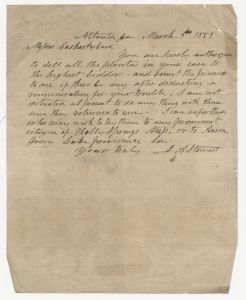 Atlanta Ga March 5th 1889
Messrs
You are hereby authorized
to sell all the plantes in your care to
the highest bidder - and remit the proceeds
to me if there be any after deducting a
remuneration for your trouble. I am not
situated at present to do any thing with them
were they returned to me - I can refer those
who may wish to buy them to any prominent
citizen of Holly Springs Miss. or to Aaron
Lake providence La.
Yours truly A Stewart